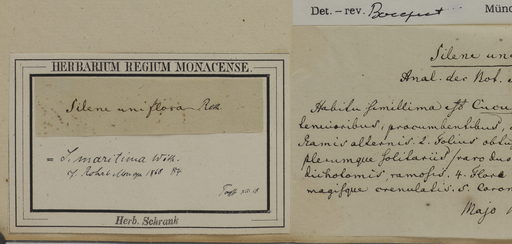 Det. – rev. Bocquet Münc
HERBARIUM REGIUM MONACENSE.
Silene uniflora Roth
= S. maritima With.
cf. Rohrb. Monogr. 1868 84
Herb. Schrank
Silene un
Anal. der Bot.
Habitu simillima est Cucu
tenuioribus, procumbentibus,
Ramis alternis. 2. Foliis oblo
plerumque solitariis/raro duo
dichotomis, ramosis. 4. Flore
magisque crenulatis. 5. Coron
Majo